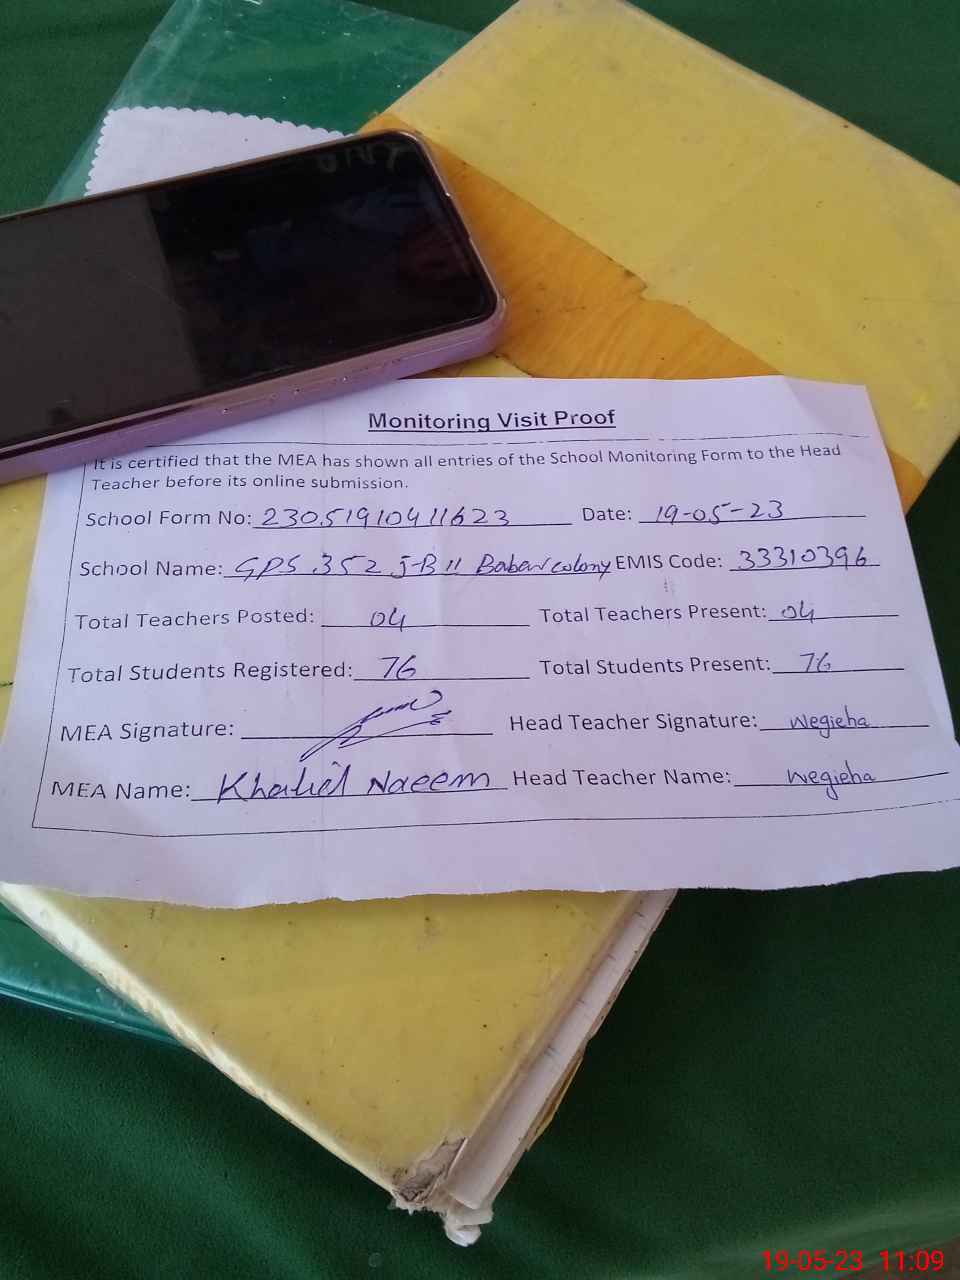 Monitoring Visit Proof
It is certified that the MEA has shown all entries of the School Monitoring Form to the Head
Teacher before its online submission.
School Form No: 230519104 11623 Date: 19-05-23
School Name: GPS 352 J-B II Babar colony EMIS Code: 33310396
Total Teachers Posted: 04 Total Teachers Present: 04
Total Students Registered: 76 Total Students Present: 76
MEA Signature: Head Teacher Signature: Negieha
MEA Name: Khalid Naeem Head Teacher Name: Negieha
19-05-23 11:09